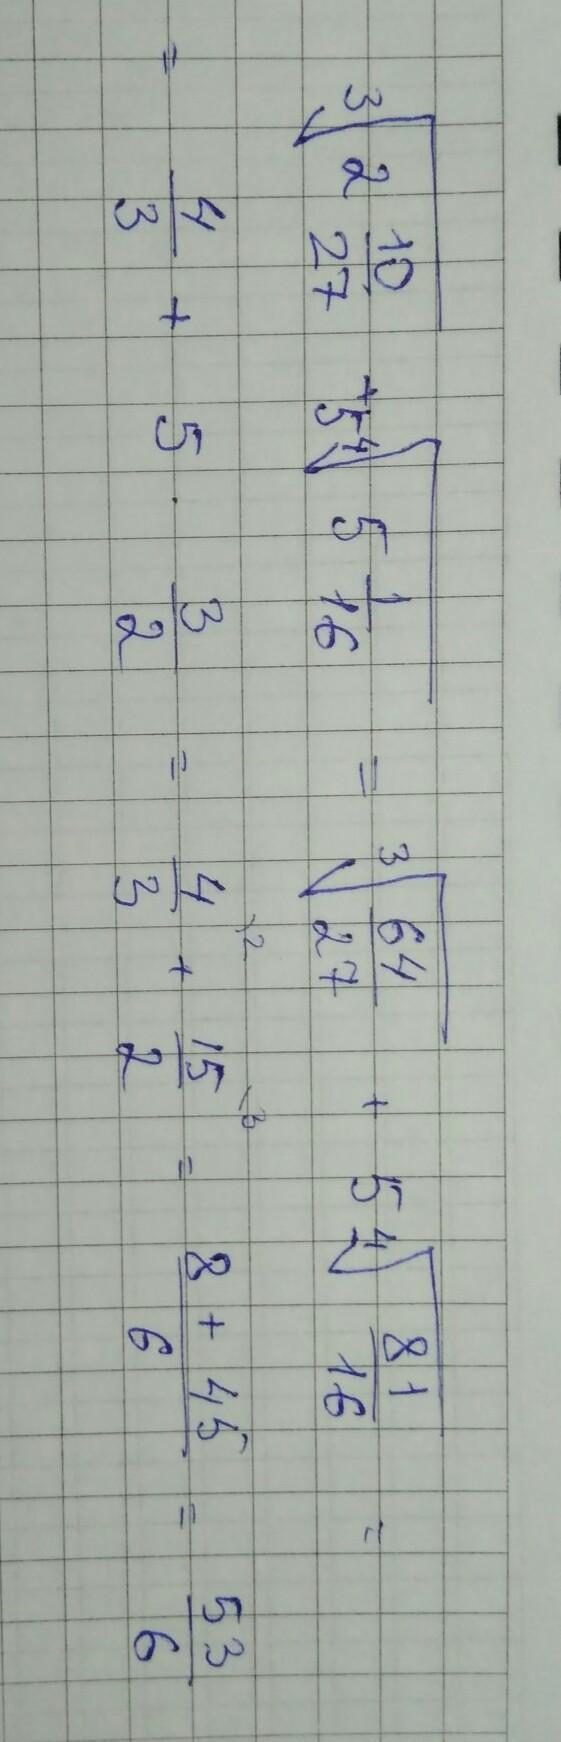 ∛(2 10/27) + 5 ∜(5 1/16) = ∛(64/27) + 5 ∜(81/16) =
= 4/3 + 5 · 3/2 = 4/3 \2 + 15/2 \3 = (8 + 45)/6 = 53/6